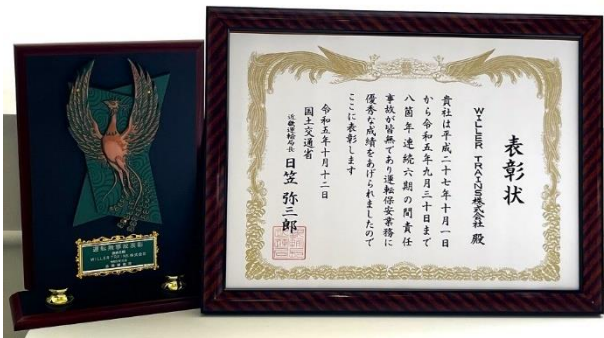 表彰状
WILLER TRAINS株式会社 殿
貴社は平成二十七年十月一日
から令和五年九月三十日まで
八箇年連続六期の間責任
事故が皆無であり運転保安業務に
優秀な成績をあげられましたので
ここに表彰します
令和五年十月十二日
国土交通省
近畿運輸局長 日笠 弥三郎
WILLER TRAINS 株式会社